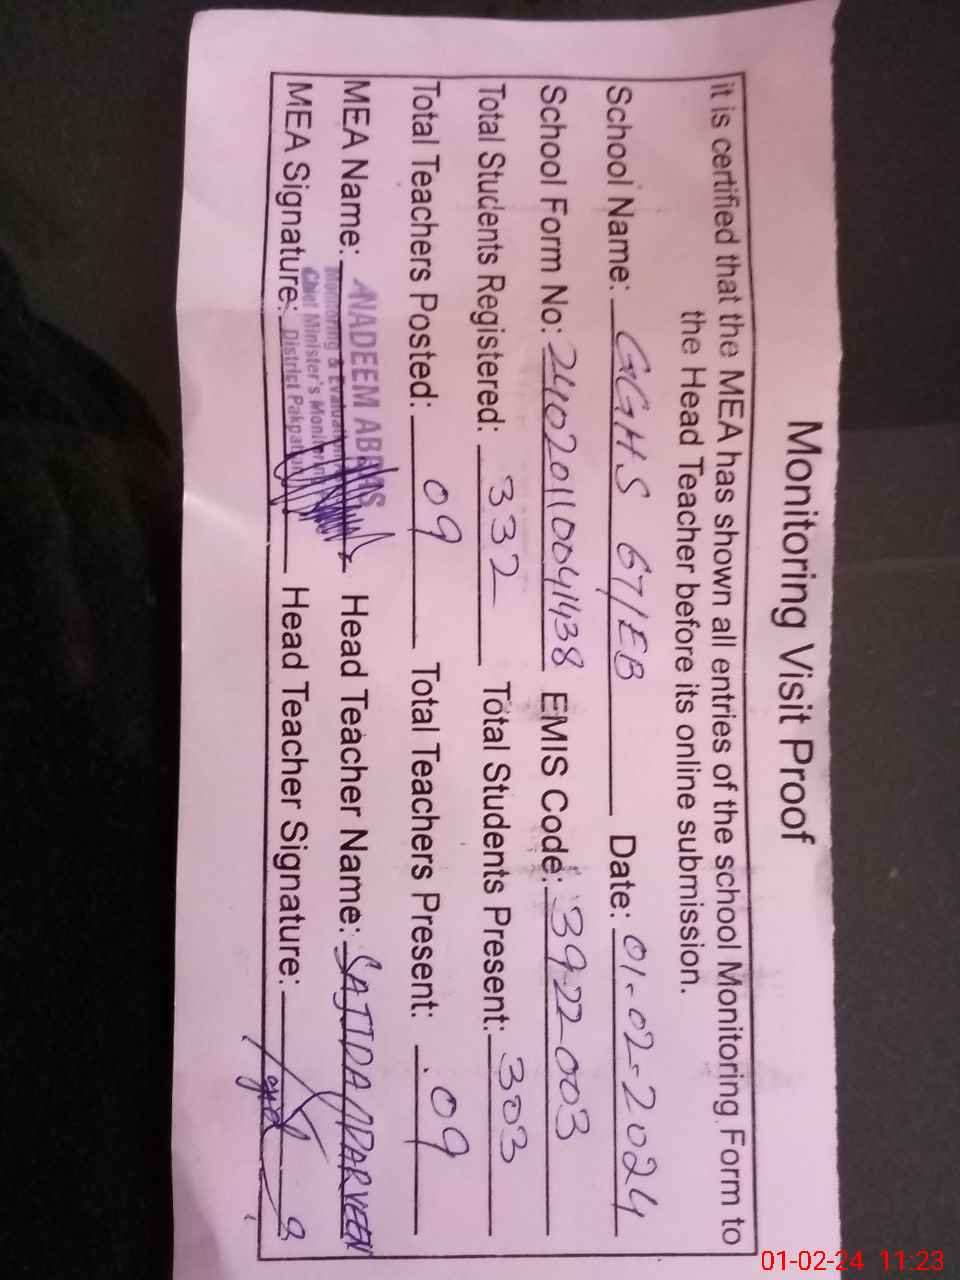 Monitoring Visit Proof
it is certified that the MEA has shown all entries of the school Monitoring Form to
the Head Teacher before its online submission.
School Name: GGHS 67/EB Date: 01-02-2024
School Form No: 24020110041438 EMIS Code: 39-22-003
Total Students Registered: 332 Total Students Present: 303
Total Teachers Posted: 09 Total Teachers Present: 09
MEA Name: NADEEM ABBAS Head Teacher Name: SAJIDA PARVEEN
Monitoring & Evaluation
Chief Minister's Monitoring
MEA Signature: District Pakpattan Head Teacher Signature:
01-02-24 11:23